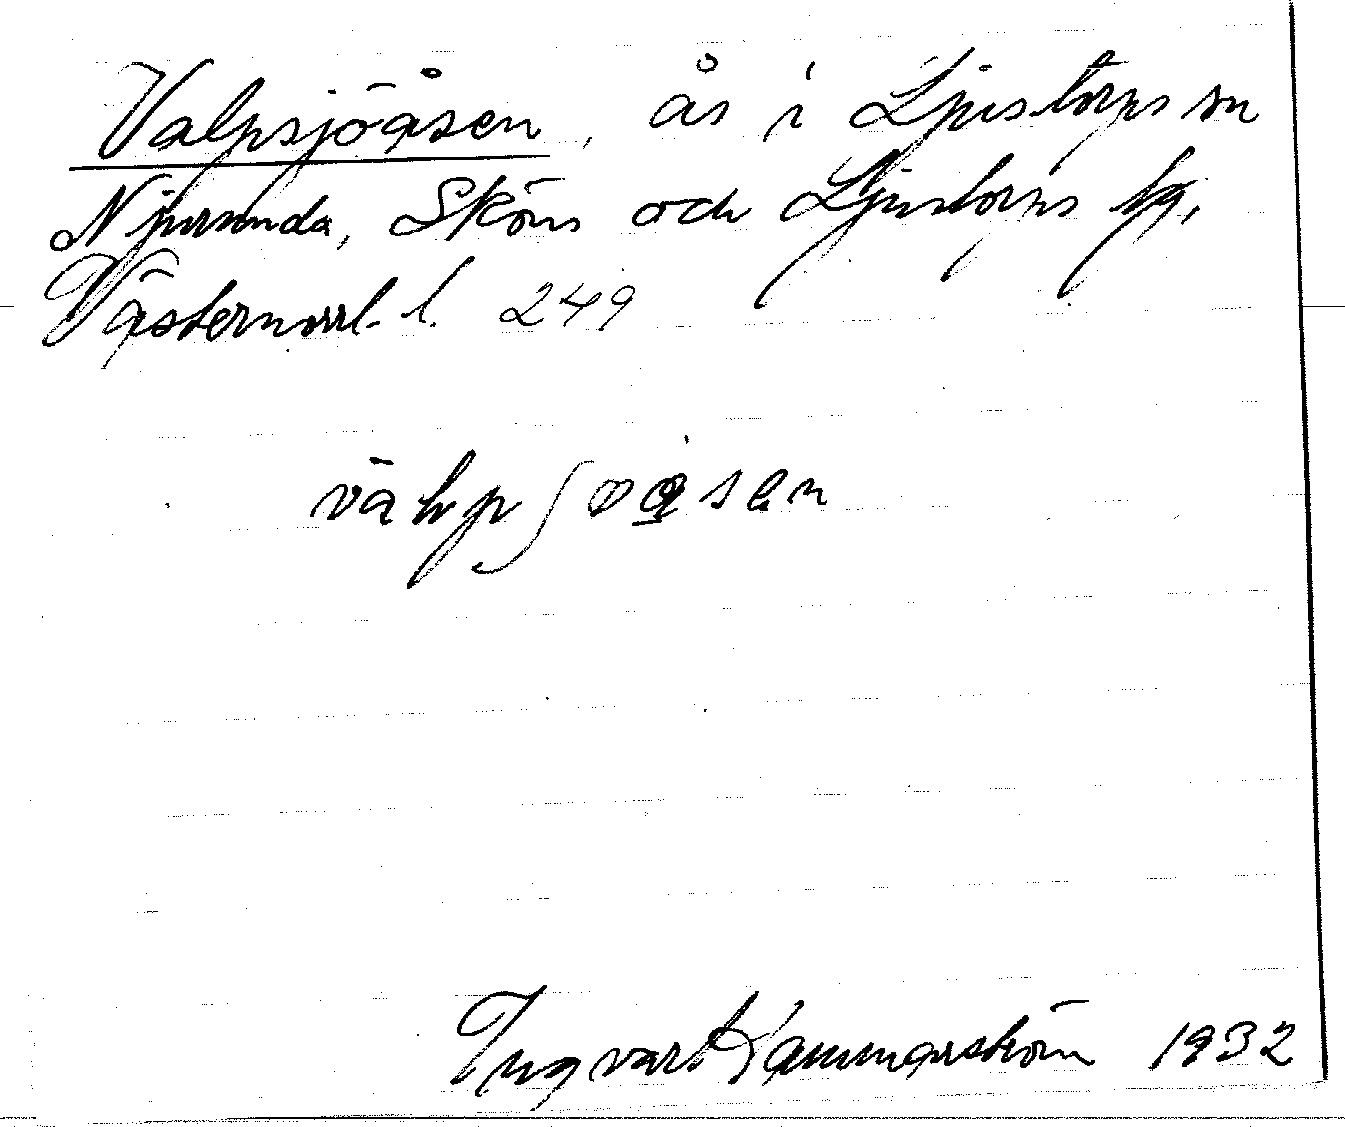 Valpsjöåsen, ås i Ljustorps sn
Njurunda, Sköns och Ljustorps tg,
Västernorrl. l. 249
Ingvar Hammarström 1932